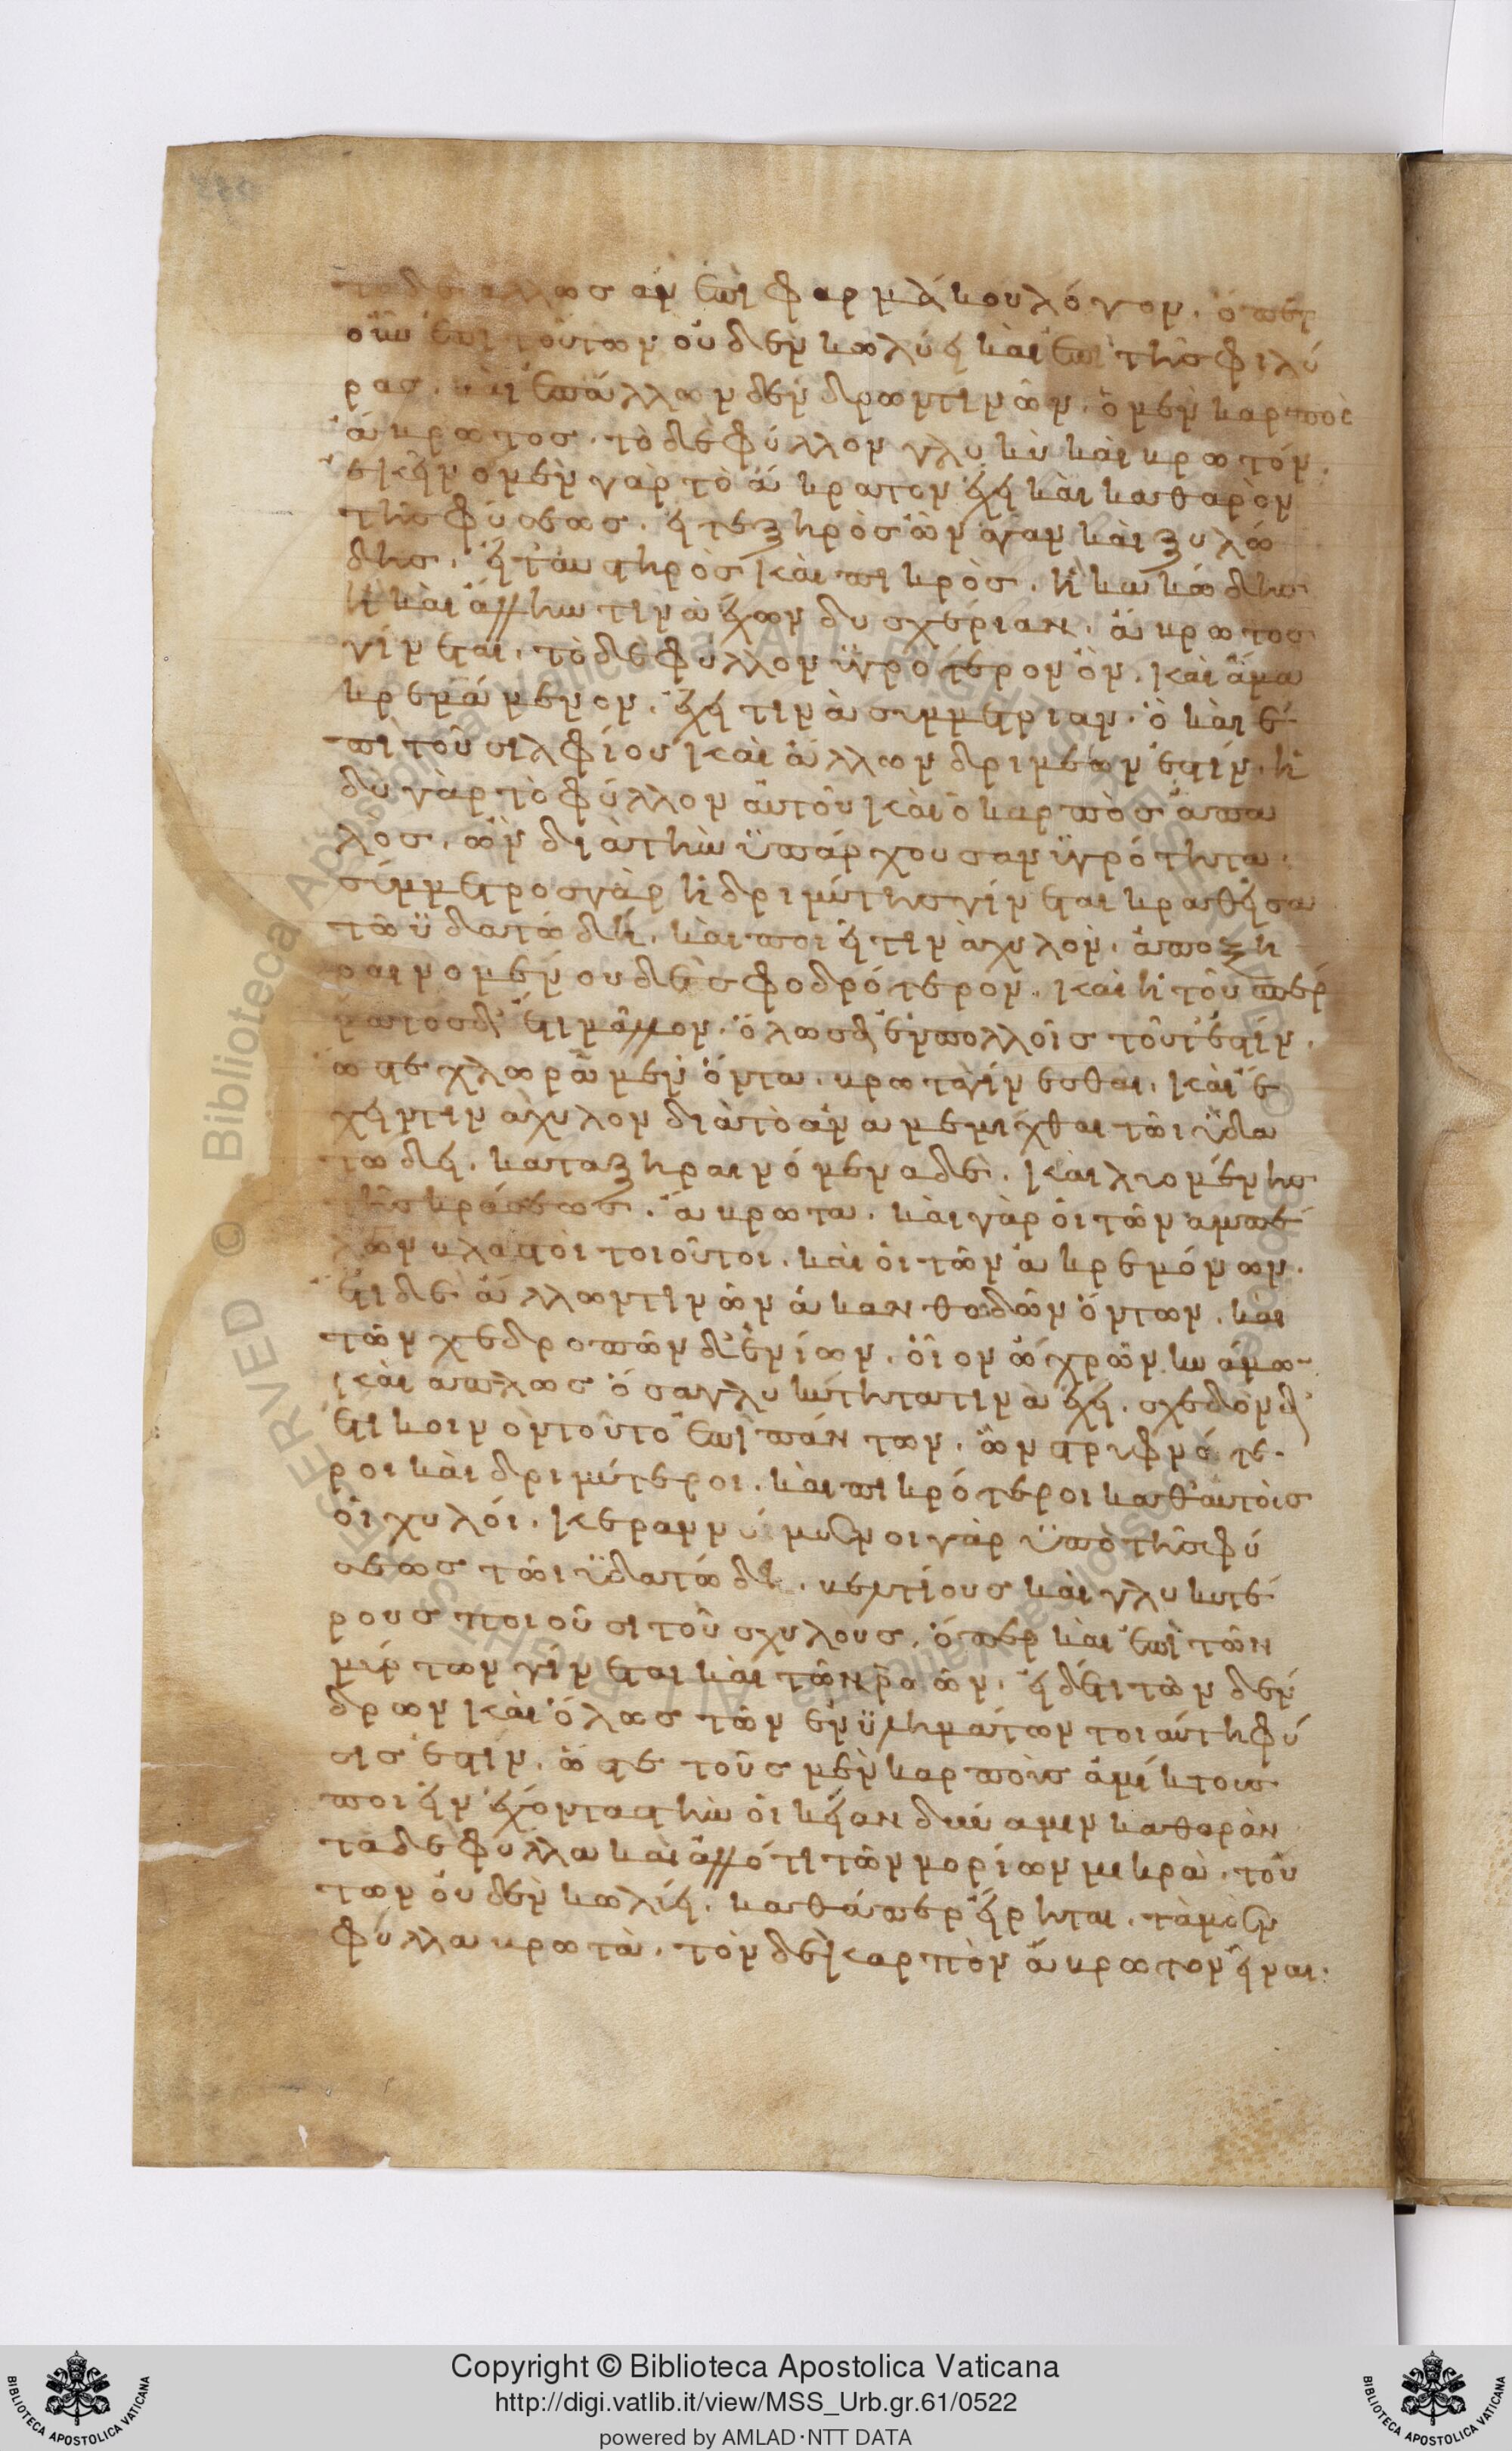 τα δὲ ἄλλως ἂν ἐπὶ φαρμάκου λόγον. ὅπερ
οὖν ἐπὶ τούτων οὐδὲν κωλύει καὶ ἐπὶ τῆς φιλύ
ρας. καὶ ἐπ' ἄλλων δένδρων τινῶν. ὁ μὲν καρπὸς
ἄβρωτος. τὸ δὲ φύλλον γλυκὺ καὶ βρωτόν.
ἐκεῖνο μὲν γὰρ τὸ ἄκρατον ἔχει καὶ καθαρὸν
τῆς φύσεως. εἴτε ξηρὸς ὢν ἄγαν καὶ ξυλώ
δης. εἴτ' αὐστηρὸς καὶ πικρὸς. ἢ κακώδης
ἢ καὶ ἄλλην τινὰ ἔχων δυσχέρειαν. ἄβρωτος
γίνεται. τὸ δὲ φύλλον ὑγρότερον ὂν. καὶ ἅμα
κρεμάμενον. ἔχει τινὰ συμμετρίαν. ὃ καὶ ἐ
πὶ τοῦ σιλφίου καὶ ἄλλων δριμέων ἐστίν. ἡ
δὺ γὰρ τὸ φύλλον αὐτοῦ καὶ ὁ καρπὸς ἁπα
λὸς. ὢν διὰ τὴν ὑπάρχουσαν ὑγρότητα.
σύμμετρος γὰρ ἡ δριμύτης γίνεται κραθεῖσα
τῶ ὑδατώδη. καὶ ποιεῖ τινὰ χυλὸν. ἀποξη
ραινομένου δὲ σφοδρότερον. καὶ ἡ τοῦ σπέρ
ματος δ' ἔτι μᾶλλον. ὅλως δ' ἐν πολλοῖς τοῦτ' ἐστίν.
ὥστε χλωρὰ μὲν ὄντα. βρωτὰ γίνεσθαι. καὶ ἔ
χειν τινὰ χυλὸν διὰ τὸ ἀναμεμίχθαι τῶι ὑδα
τώδει. καταξηραινόμενα δὲ. καὶ λυομένης
τῆς κράσεως. ἄβρωτα. καὶ γὰρ οἱ τῶν ἀμπέ
λων βλαστοὶ τοιοῦτοι. καὶ οἱ τῶν ἀκρεμόνων.
ἔτι δὲ ἄλλων τινῶν ἀκανθωδῶν ὄντων. καὶ
τῶν χεδροπῶν δ' ἐνίων. οἷον ὤχρων κυάμω
καὶ ἁπλῶς ὅσα γλυκύτητα τινὰ ἔχει. σχεδὸν δ'
ἔτι κοινὸν τοῦτο ἐπὶ πάντων. ὧν στρυφνότε
ροι καὶ δριμύτεροι. καὶ πικρότεροι καθ' αὑτοὺς
οἱ χυλοὶ. κεραννύμενοι γὰρ ὑπὸ τῆς φύ
σεως τῶι ὑδατώδει. βελτίους καὶ γλυκυτέ
ρους ποιοῦσι τοὺς χυλούς. ὅπερ καὶ ἐπὶ τῶν
μύρτων γίνεται καὶ τῶν ῥοῶν. εἰ δέ τι τῶν δέν
δρων καὶ ὅλως τῶν ἐν ὑλημάτων τοιαύτη φύ
σις ἐστίν. ὥστε τοὺς μὲν καρποὺς ἀμίκτους
ποιεῖν ἔχοντας τὴν οἰκείαν δύναμιν καθαρὰν
τὰ δὲ φύλλα καὶ ἄλλό τι τῶν μορίων μικρὰ. τού
των οὐδὲν κωλύει. καθάπερ εἴρηται. τὰ μὲν
φύλλα βρωτὰ. τὸν δὲ καρπὸν ἄβρωτον εἶναι.
Copyright © Biblioteca Apostolica Vaticana
http://digi.vatlib.it/view/MSS_Urb.gr.61/0522
powered by AMLAD·NTT DATA